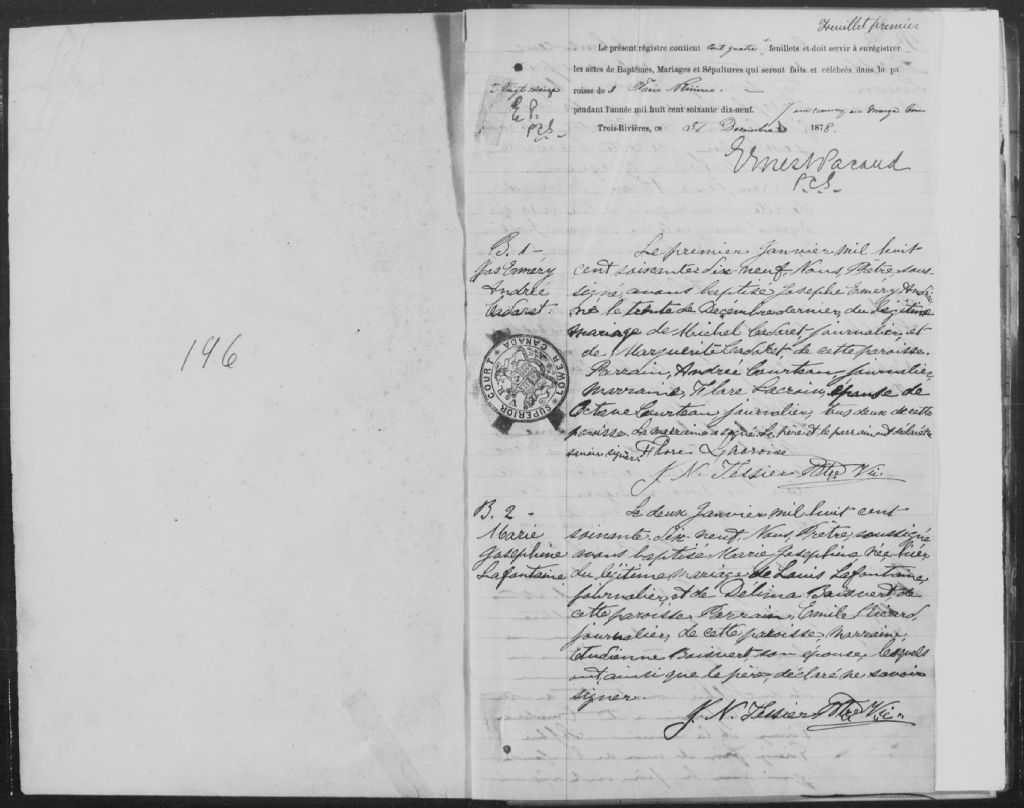 196
Feuillet premier
Le présent régistre contient cent quatre feuillets et doit servir à enrégistrer
les actes de Baptêmes, Mariages et Sépultures qui seront faits et célébrés dans la pa
roisse de Trois Rivières
pendant l'année mil huit cent soixante dix-neuf.
Trois-Rivières, ce 31 Décembre 1878.
Ernest Pacaud
P.C.S.
E. P.
P.C.S.
B. 1 -
Jos Eméry
André
Cadoret.
Le premier Janvier mil huit
cent soixante dix-neuf, Nous Prêtre sous-
signé, avons baptisé Josephe Eméry André
né le trente de Décembre dernier, du légitime
mariage de Michel Cadoret, journalier, et
de Marguerite Cadoret de cette paroisse.
Parrain, André Courteau journalier,
marraine, Flore Lacroix, épouse de
Octave Courteau journalier, tous deux de cette
paroisse. La marraine a signé. Le père et le parrain ont déclaré ne
savoir signer. Flore
J. N. Tessier Ptre Vic.
SUPERIOR COURT LOWER CANADA
V R
B. 2 -
Marie
Joséphine
Lafontaine
Le deux Janvier mil huit cent
soixante-dix-neuf, Nous Prêtre soussigné
avons baptisé Marie Joséphine, née hier
du légitime mariage de Louis Lafontaine,
journalier, et de Délima Boisvert, de
cette paroisse. Parrain, Emile Picard,
journalier, de cette paroisse, marraine,
Boisvert son épouse, lesquels
ont, ainsi que le père, déclaré ne savoir
signer.
J. N. Tessier Ptre Vic.